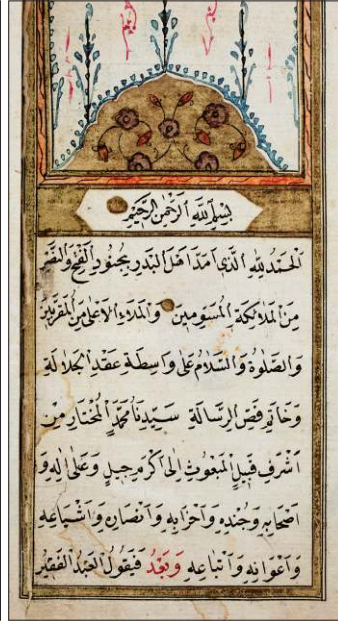 بِسْمِ اللّٰهِ الرَّحْمٰنِ الرَّحِيْمِ
اَلْحَمْدُ لِلّٰهِ الَّذِي اَمَدَّ اَهْلَ الْبَدْرِ بِجُنُودِ الْفَتْحِ وَالنَّصْرِ
مِنَ الْمَلَائِكَةِ الْمُسَوِّمِينَ وَالْمَلَاءِ الْاَعْلٰى مِنَ الْمُقَرَّبِينَ
وَالصَّلٰوةُ وَالسَّلَامُ عَلٰى وَاسِطَةِ عِقْدِ الْجَلَالَةِ
وَخَاتَمِ فَصِّ الرِّسَالَةِ سَيِّدِنَا مُحَمَّدٍ الْمُخْتَارِ مِنْ
اَشْرَفِ قَبِيلٍ الْمَبْعُوثِ اِلٰى اَكْرَمِ جِيلٍ وَعَلٰى اٰلِهِ وَ
اَصْحَابِهِ وَجُنْدِهِ وَاَحْزَابِهِ وَاَنْصَارِهِ وَاَشْيَاعِهِ
وَاَعْوَانِهِ وَاَتْبَاعِهِ وَبَعْدُ فَيَقُولُ الْعَبْدُ الْفَقِيرُ